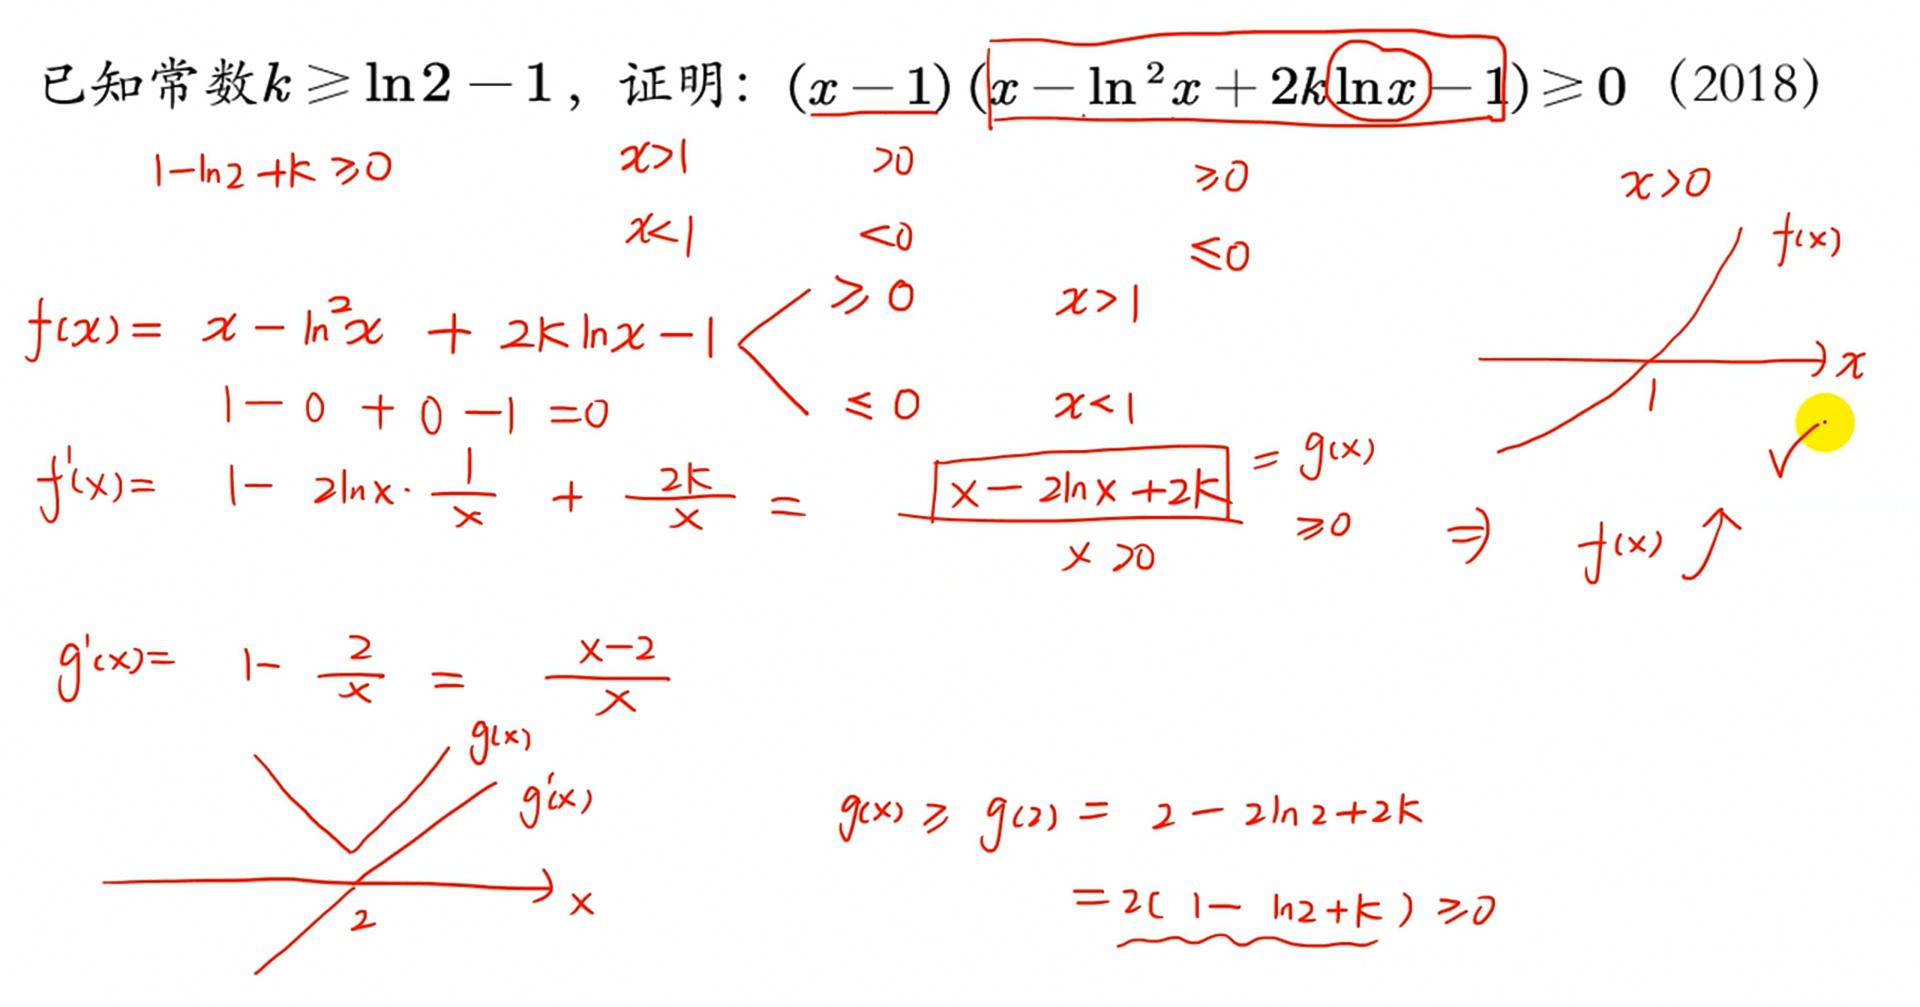 已知常数k ⩾ ln2 − 1，证明：(x − 1)(x − ln²x + 2k lnx − 1) ⩾ 0（2018）
1-ln2+k ⩾0 x>1 >0 ⩾0 x>0
x<1 <0 ⩽0 f(x)
f(x)= x - ln²x + 2k lnx - 1 ⩾ 0 x>1
1 - 0 + 0 - 1 =0 ⩽ 0 x<1
x
1
f'(x)= 1 - 2lnx · 1/x + 2k/x = (x - 2lnx + 2k)/x = g(x)
⩾0 ⇒ f(x) ↑
x >0
g'(x)= 1 - 2/x = (x-2)/x
g(x)
g'(x)
x
2
g(x) ⩾ g(2) = 2 - 2ln2+2k
=2( 1 - ln2+k ) ⩾0